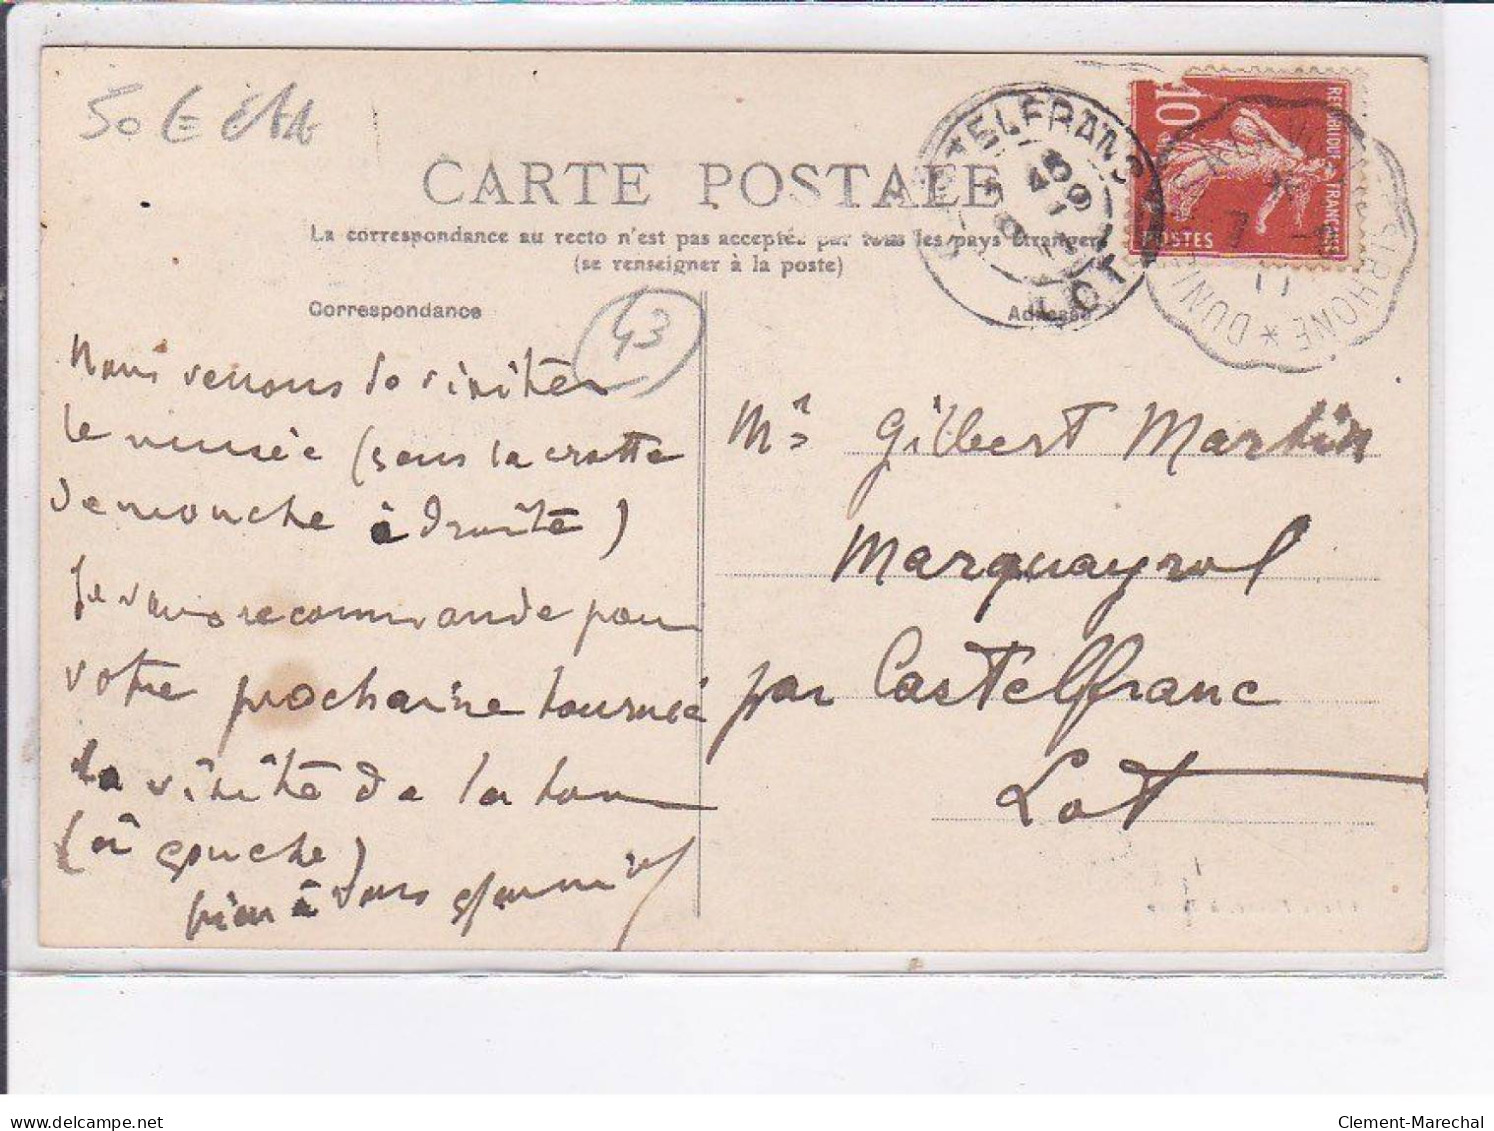 50 €
CARTE POSTALE
La correspondance au recto n'est pas acceptée par tous les pays étrangers
(se renseigner à la poste)
Correspondance
Adresse
43
CASTELFRANC
LOT
REPUBLIQUE FRANCAISE
10
POSTES
DUNIÈRES
S/RHONE
11
Nous venons de visiter
le musée (sous la crotte
de mouche à droite)
Je vous recommande pour
votre prochaine tournée
la visite de la tour
(à gauche)
bien à vous
Mr Gilbert Martin
Marquayrol
par Castelfranc
Lot
Clement-Marechal
delcampe.net